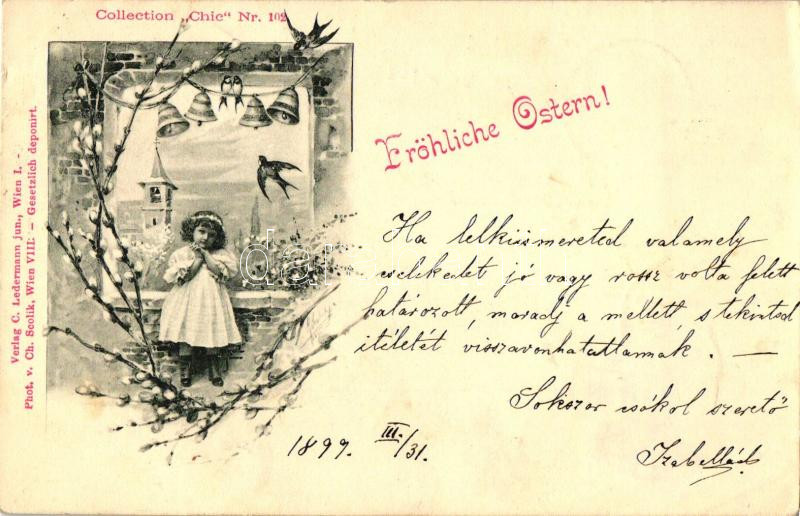 Collection „Chic“ Nr. 102
Verlag C. Ledermann jun., Wien I. -
Phot. v. Ch. Scolik, Wien VIII. - Gesetzlich deponirt.
Fröhliche Ostern!
Ha lelkiismereted valamely
cselekedet jó vagy rossz volta felett
határozott, maradj a mellett, s tekintsd
itéletét visszavonhatatlannak. —
Sokszor csókol szerető
Izabellád
1899. III./31.